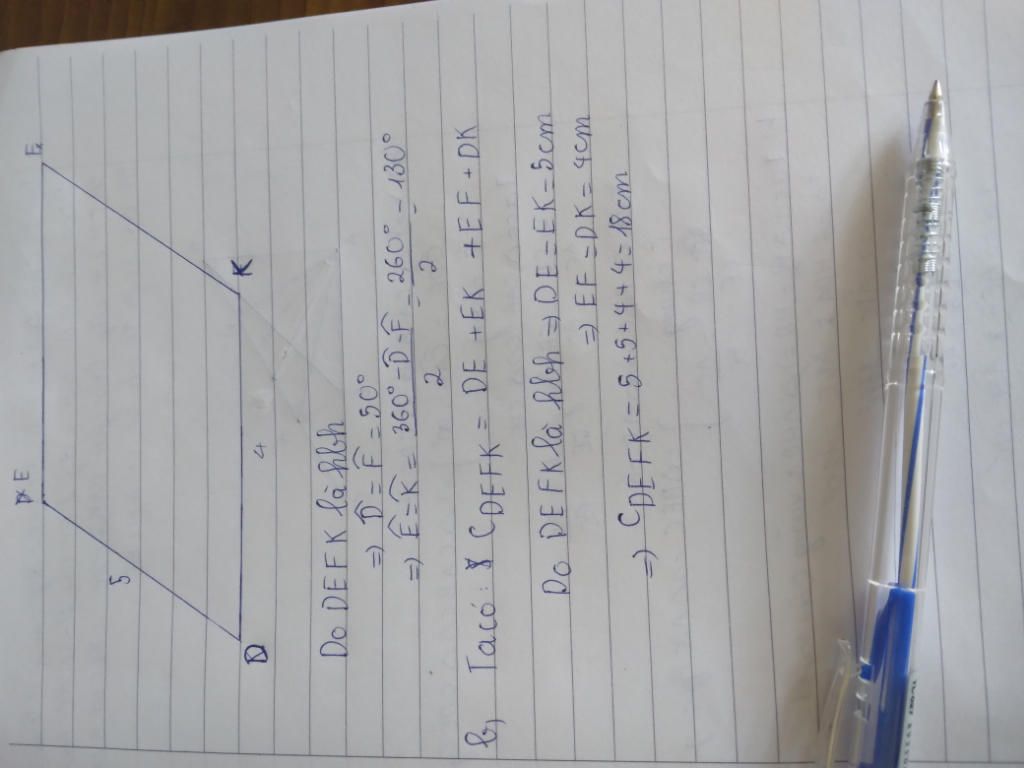 E F
5
D 4 K
Do DEFK là hbh
=) D̂ = F̂ = 50°
=) Ê = K̂ = (360° - D̂ - F̂)/2 = 260°/2 = 130°
b, Ta có: C_DEFK = DE + EK + EF + DK
Do DEFK là hbh =) DE = EK = 5cm
=) EF = DK = 4cm
=) C_DEFK = 5+5+4+4 = 18cm